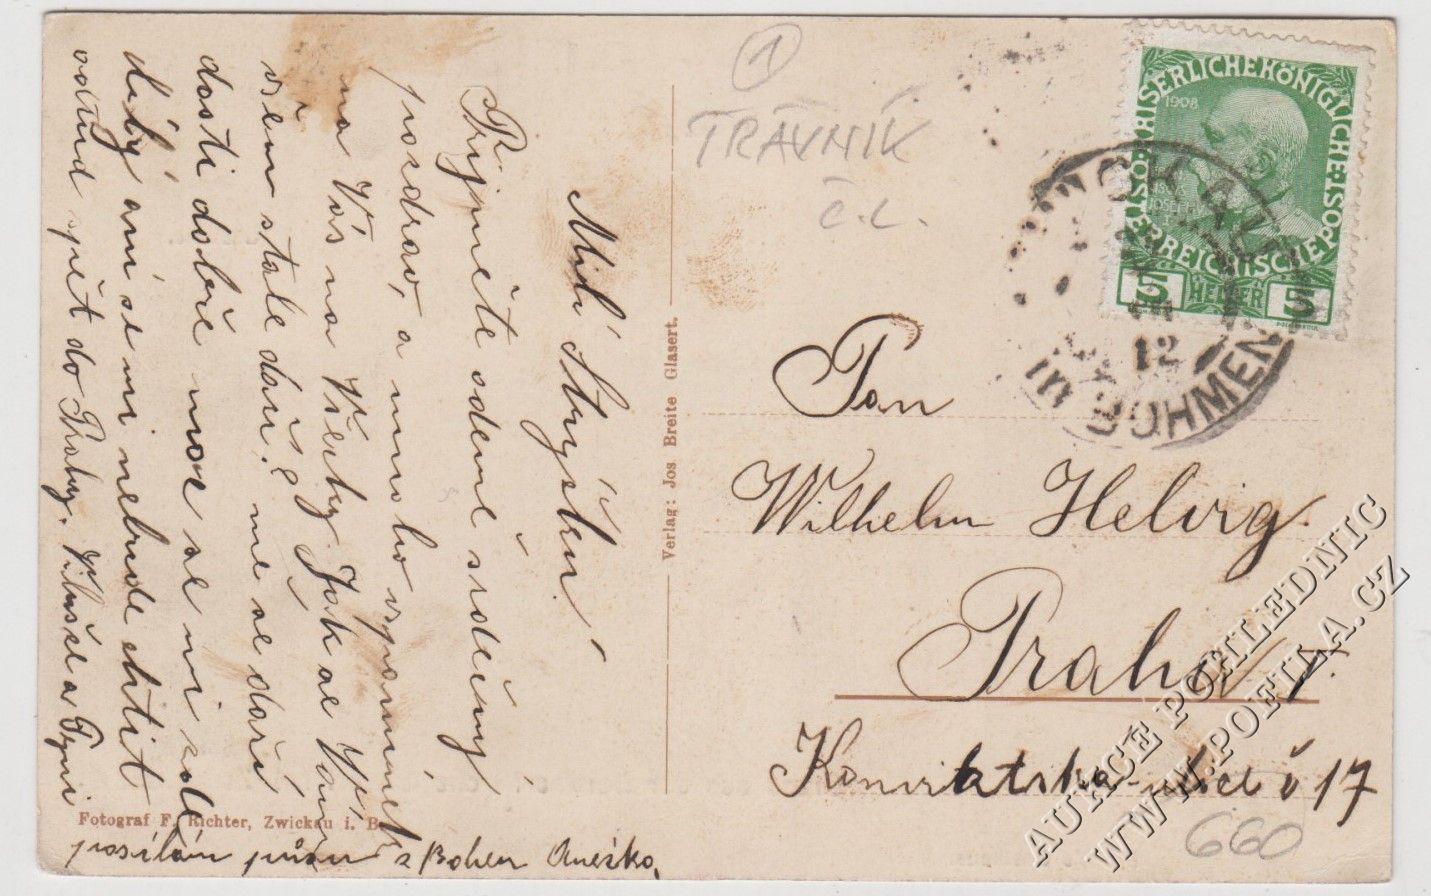 Milí Strýčku!
Přijměte odemě srdečný
pozdrav, a mnoho vzpomínek
na Vás na Všechy Jak se Vám
všem stále daří? mě se daří
dosti dobře moc se mi zde
líbý ani se mi nebude chtít
odtud zpět do Prahy.
posílám z Bohem Anežko,
① 
TRÁVNÍK
Č.L.
Verlag: Jos Breite Glasert.
Fotograf F. Richter, Zwickau i. B.
KAISERLICHE KÖNIGLICHE
ÖSTERREICHISCHE POST
1908
5 HELLER 5
12
in BÖHMEN
Pan
Wilhelm Helvig
Praha I.
Konviktská ul. č 17
660
AUKCE POHLEDNIC
WWW.POFILA.CZ